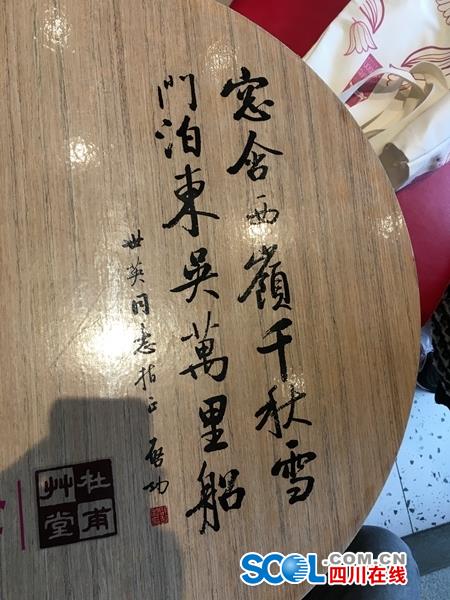 窓含西嶺千秋雪
門泊東吳萬里船
世英同志指正 啓功
杜甫
艸堂
SCOL.COM.CN
四川在线